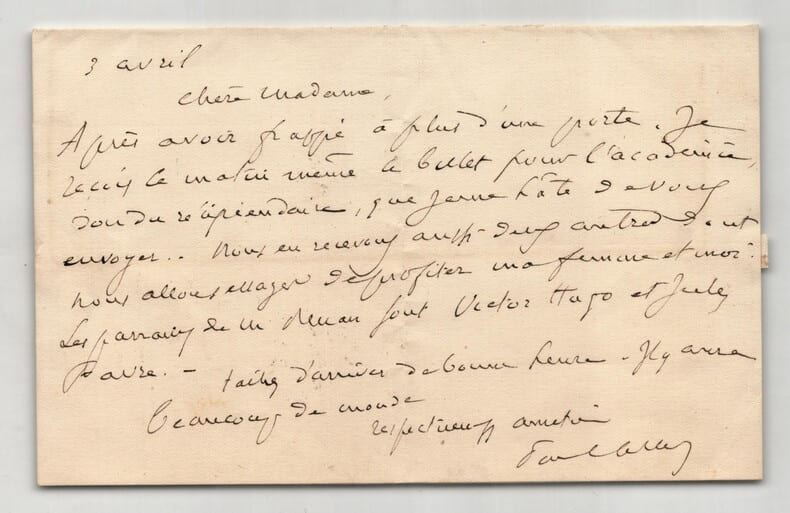 3 avril
chère Madame,
Après avoir frappé à plus d'une porte. Je
reçois ce matin même ce billet pour l'académie,
don du récipiendaire, que j'ai hâte de vous
envoyer.. Nous en recevons aussi deux autres dont
nous allons essayer de profiter ma femme et moi.
Les parrains de M Renan sont Victor Hugo et Jules
Favre. - tachez d'arriver de bonne heure. Il y aura
beaucoup de monde
respectueuse amitié
Paul